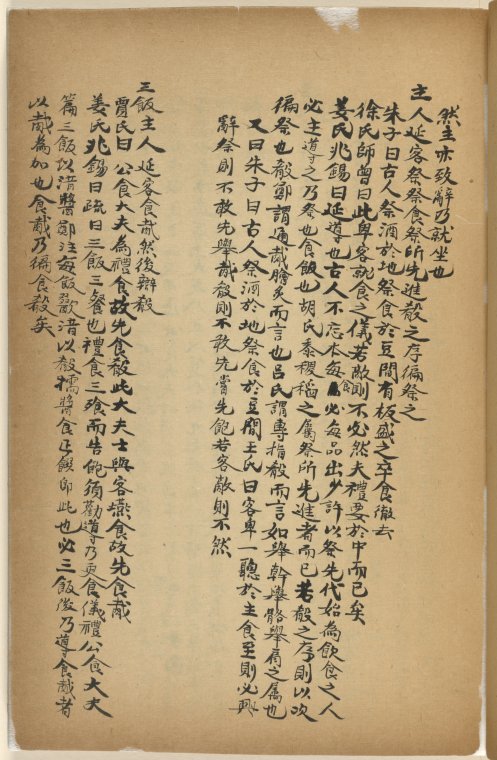 然主亦致辭乃就坐也
主人延客祭祭食祭所先進殽之序徧祭之
朱子曰古人祭酒於地祭食於豆間有板盛之卒食徹去
徐氏師曾曰此與客就食之儀若敵則不必然夫禮要於中而已矣
姜氏兆錫曰延導也古人不忘本每食必每品出少許以祭先代始為飲食之人
必主導之乃祭也食飯也胡氏黍稷稻之屬祭所先進者而已若殽之序則以次
徧祭也殽鄭謂通胾膾炙而言也呂氏謂專指殽而言如舉幹舉骼舉肩之屬也
又曰朱子曰古人祭酒於地祭食於豆間王氏曰客卑一聽於主食至則必興
辭祭則不敢先舉胾殽則不敢先嘗先飽若客敵則不然
三飯主人延客食胾然後辯殽
賈氏曰公食大夫為禮食故先食殽此大夫士與客燕食故先食胾
姜氏兆錫曰疏曰三飯三餐也禮食三飱而告飽須勸導乃更食儀禮公食大夫
篇三飯以湆醬鄭注每飯歠湆以殽擩醬食正饌即此也必三飯後乃導食胾者
以胾為加也食胾乃徧食殽矣